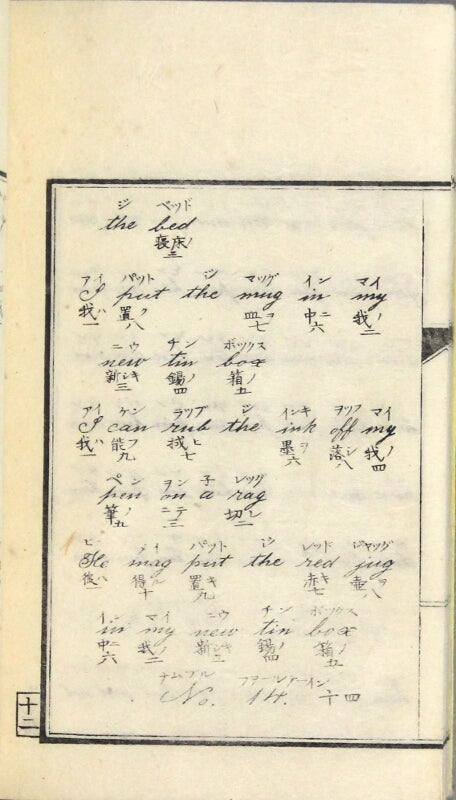 ジ ベッド
the bed
寝床ノ三
アイ パット ジ マッグ イン マイ
I put the mug in my
我ハ一 置ク八 皿ヲ七 中ニ六 我ノ二
ニウ チン ボックス
new tin box
新シキ三 錫ノ四 箱ノ五
アイ ケン ラップ ジ インキ ヲッフ マイ
I can rub the ink off my
我ハ一 能フ九 拭ヒ七 墨ヲ六 落シ八 我ノ四
ペン ヲン 子 レッグ
pen on a rag
筆ノ ニテ三 切レ二
ヒ メイ パット ジ レッド ジャッグ
He may put the red jug
彼ハ一 得ル十 置キ九 赤キ七 壷ヲ八
イン マイ ニウ チン ボックス
in my new tin box
中ニ六 我ノ二 新シキ三 錫ノ四 箱ノ五
ナムブル フヲールテーイン
No. 14. 十四
十二